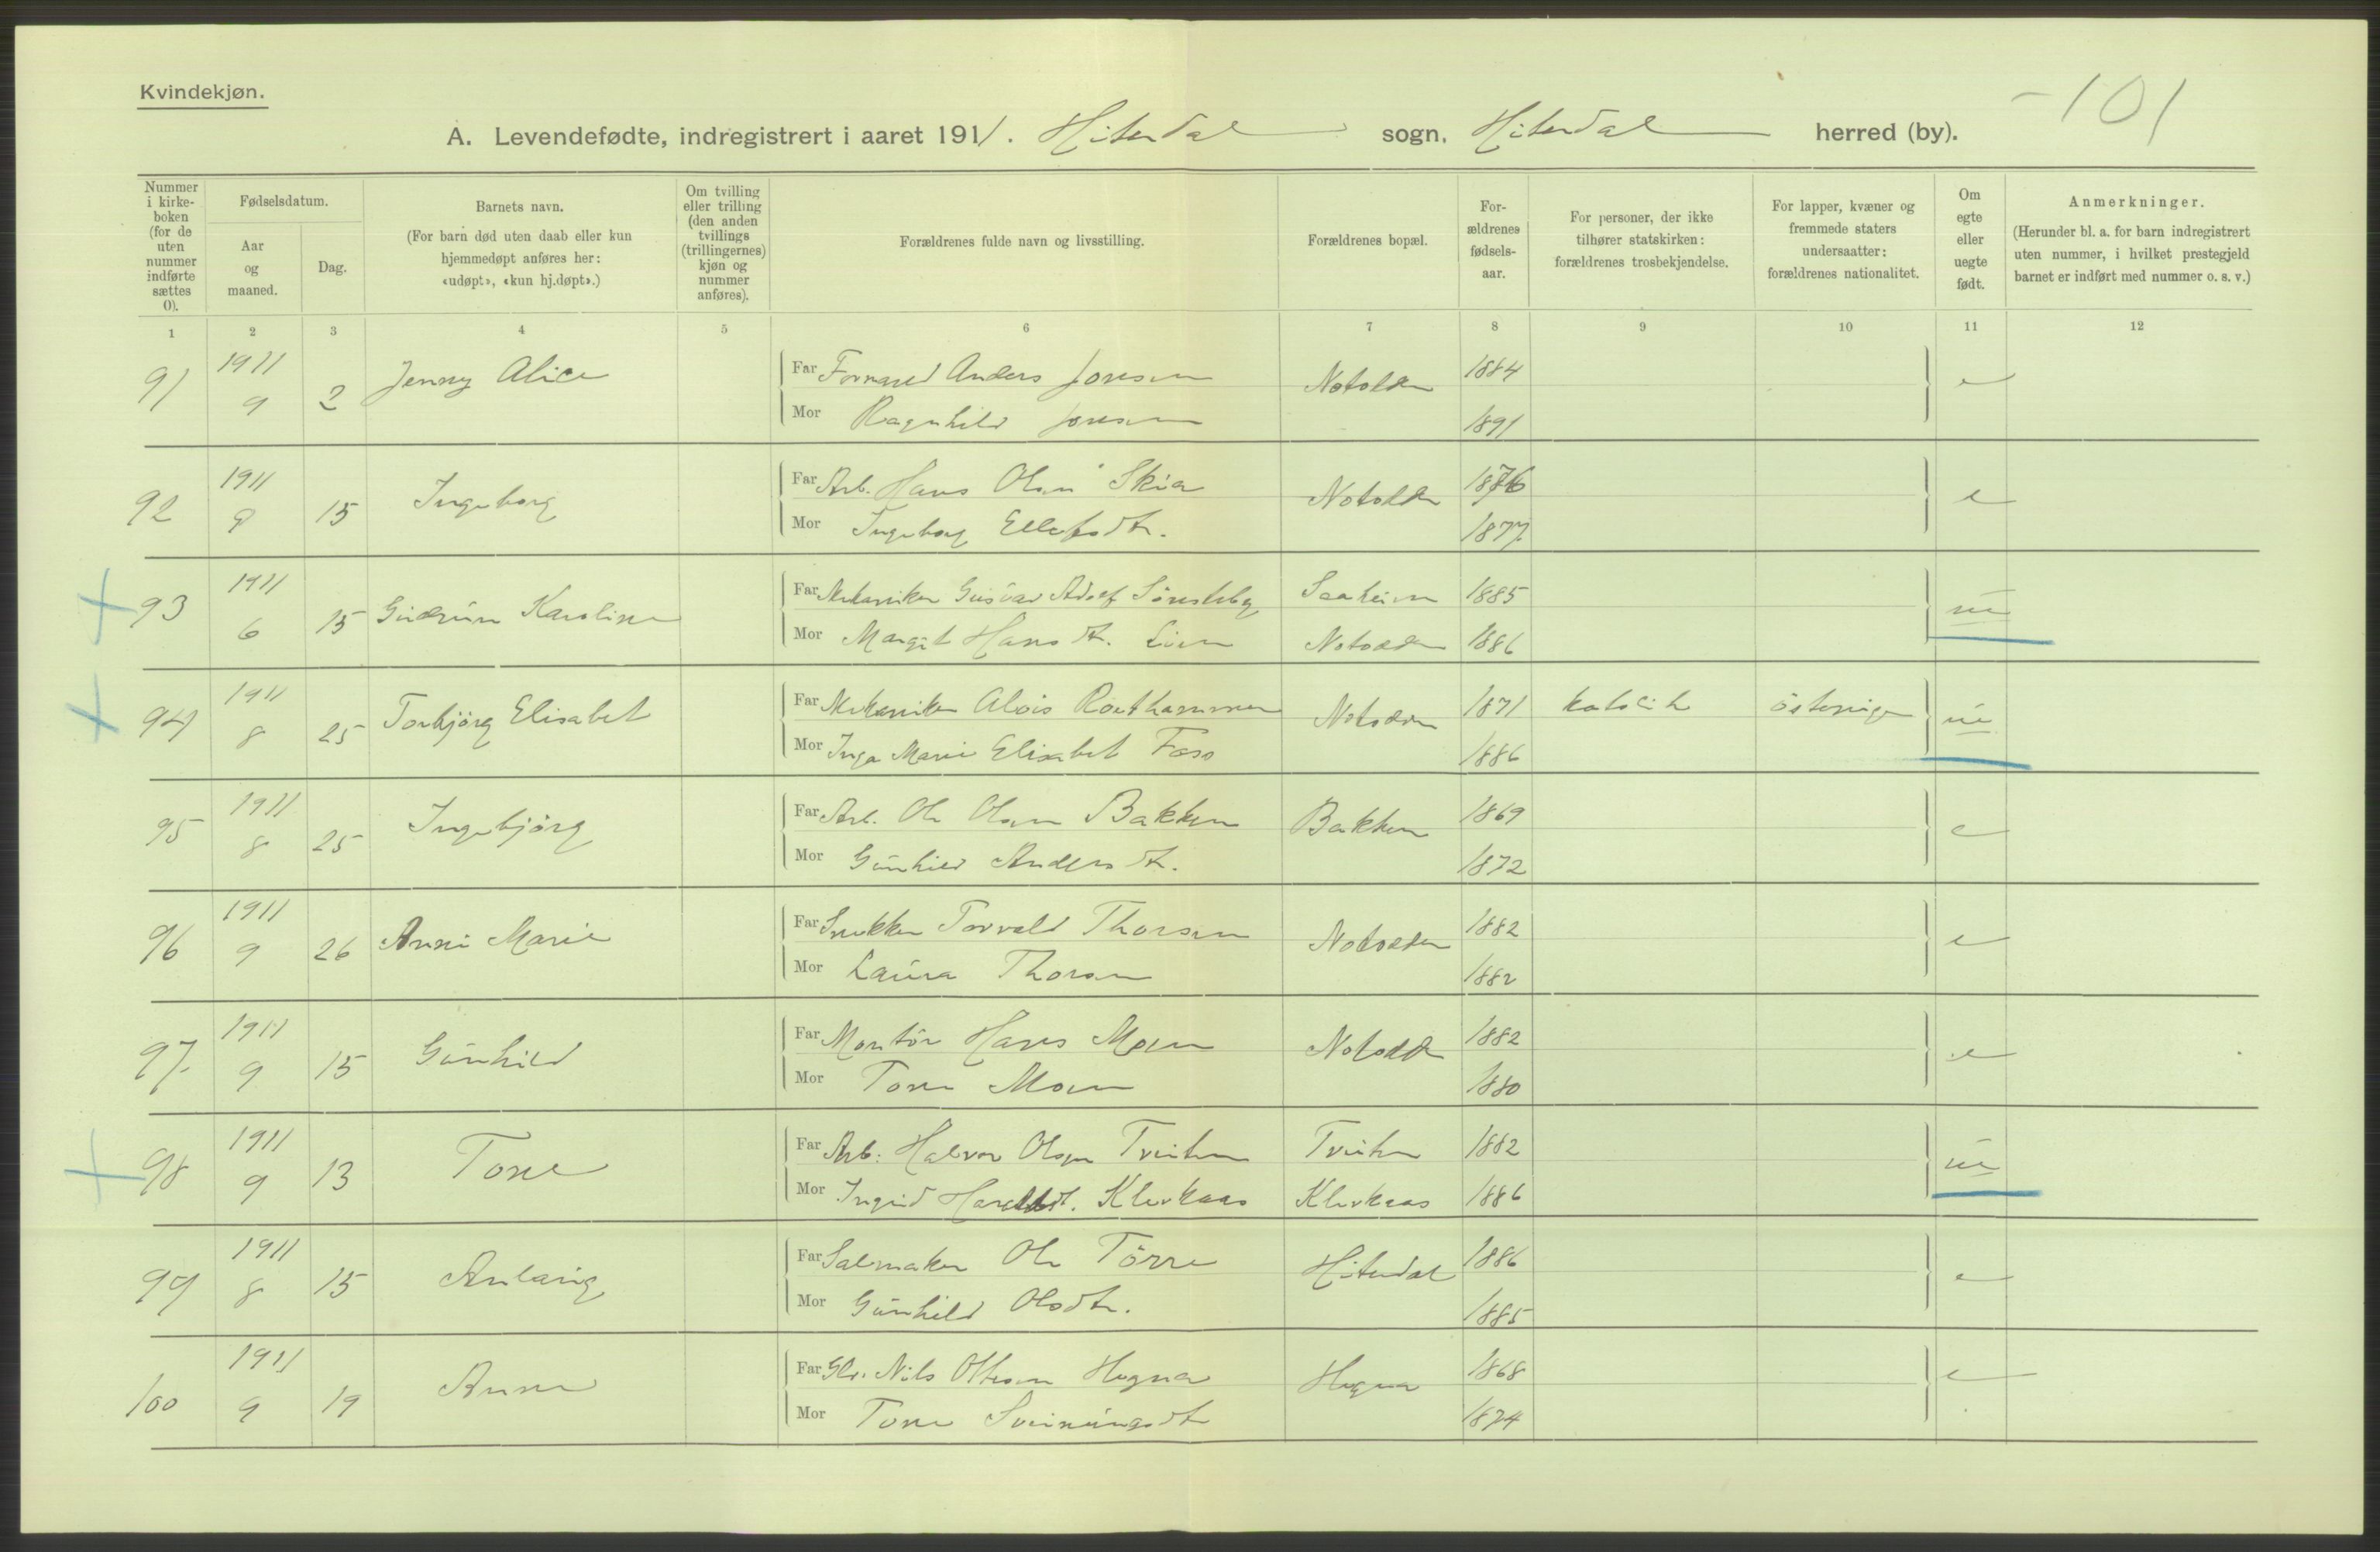 Kvindekjøn.
-101
A. Levendefødte, indregistrert i aaret 1911. Hiterdal sogn, Hiterdal herred (by).
Nummer i kirkeboken (for de uten nummer indførte sættes 0).
Fødselsdatum.
Aar og maaned.
Dag.
Barnets navn.
(For barn død uten daab eller kun hjemmedøpt anføres her: «udøpt», «kun hj.døpt».)
Om tvilling eller trilling (den anden tvillings (trillingernes) kjøn og nummer anføres).
Forældrenes fulde navn og livsstilling.
Forældrenes bopæl.
Forældrenes fødselsaar.
For personer, der ikke tilhører statskirken: forældrenes trosbekjendelse.
For lapper, kvæner og fremmede staters undersaatter: forældrenes nationalitet.
Om egte eller uegte født.
Anmerkninger.
(Herunder bl. a. for barn indregistrert uten nummer, i hvilket prestegjeld barnet er indført med nummer o. s. v.)
1 2 3 4 5 6 7 8 9 10 11 12
91 1911 9 2 Jenny Alice
Far Formand Anders Jonsen Notodden 1884 e
Mor Ragnhild Jonsen 1891
92 1911 9 15 Ingeborg
Far Arb. Hans Olsen Skia Notodden 1876 e
Mor Ingeborg Ellefsdtr. 1877
93 1911 6 15 Gudrun Karoline
Far Mekaniker Gustav Adolf Saaheim 1885 ue
Mor Margit Hansdtr. Lien Notodden 1886
94 1911 8 25 Torbjörg Elisabet
Far Mekaniker Alois Notodden 1871 katolik österriger ue
Mor Inga Marie Elisabet Foss 1886
95 1911 8 25 Ingebjörg
Far Arb. Ole Olsen Bakken Bakken 1869 e
Mor Gunhild Andersdtr. 1872
96 1911 9 26 Anni Marie
Far Snekker Torvald Thorsen Notodden 1882 e
Mor Laura Thorsen 1882
97. 1911 9 15 Gunhild
Far Montör Hans Moen Notodden 1882 e
Mor Tone Moen 1880
98 1911 9 13 Tone
Far Arb. Halvor Olsen Tveiten Tveiten 1882 ue
Mor Ingrid Klevkaas Klevkaas 1886
99 1911 8 15 Anlaug
Far Salmaker Ole Törre Hiterdal 1886 e
Mor Gunhild Olsdtr. 1885
100 1911 9 19 Anne
Far Nils Ottesen Hogna Hogna 1868 e
Mor Tone Sveinungsdtr 1874